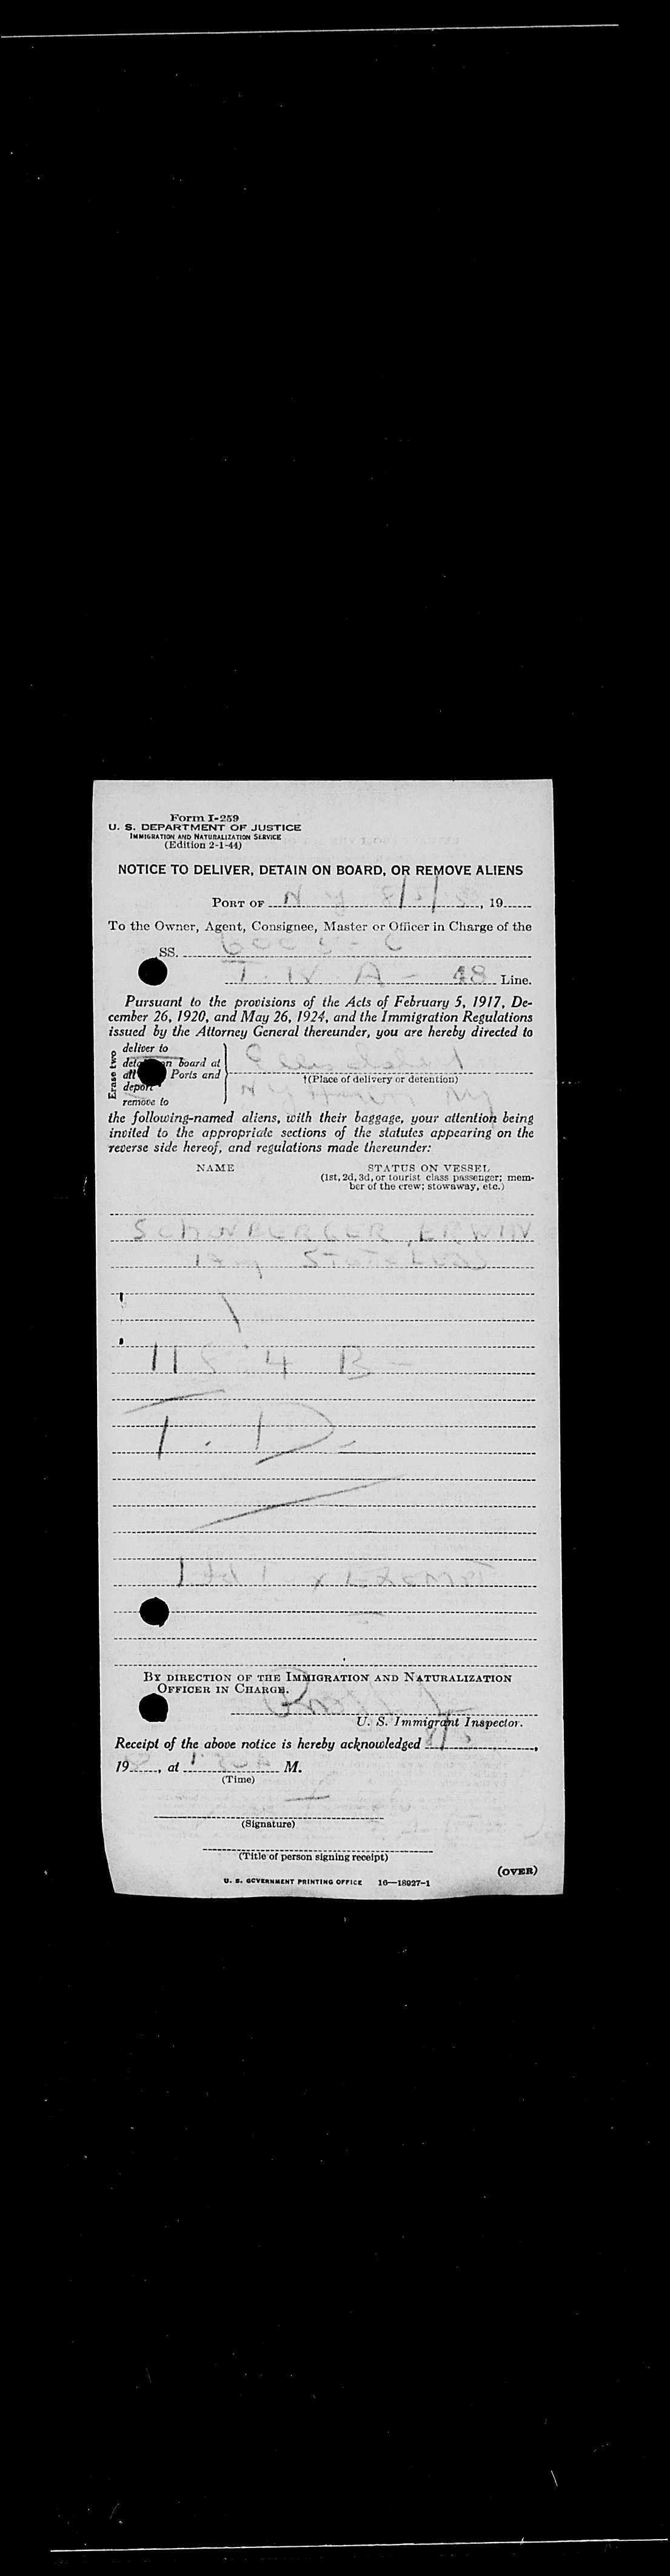 Form I-259
U. S. DEPARTMENT OF JUSTICE
IMMIGRATION AND NATURALIZATION SERVICE
(Edition 2-1-44)
NOTICE TO DELIVER, DETAIN ON BOARD, OR REMOVE ALIENS
PORT OF N Y 8/ / , 19
To the Owner, Agent, Consignee, Master or Officer in Charge of the
SS.
T. W. A - 48 Line.
Pursuant to the provisions of the Acts of February 5, 1917, De-
cember 26, 1920, and May 26, 1924, and the Immigration Regulations
issued by the Attorney General thereunder, you are hereby directed to
Erase two
deliver to
on board at
Ports and
deport
remove to
†(Place of delivery or detention)
N Y Harbor NY
the following-named aliens, with their baggage, your attention being
invited to the appropriate sections of the statutes appearing on the
reverse side hereof, and regulations made thereunder:
NAME STATUS ON VESSEL
(1st, 2d, 3d, or tourist class passenger; mem-
ber of the crew; stowaway, etc.)
SCHONBERGER, ERWIN
B-
T. D.
BY DIRECTION OF THE IMMIGRATION AND NATURALIZATION
OFFICER IN CHARGE.
U. S. Immigrant Inspector.
Receipt of the above notice is hereby acknowledged 8/ ,
19 , at M.
(Time)
(Signature)
(Title of person signing receipt)
(OVER)
U. S. GOVERNMENT PRINTING OFFICE 16—18927-1